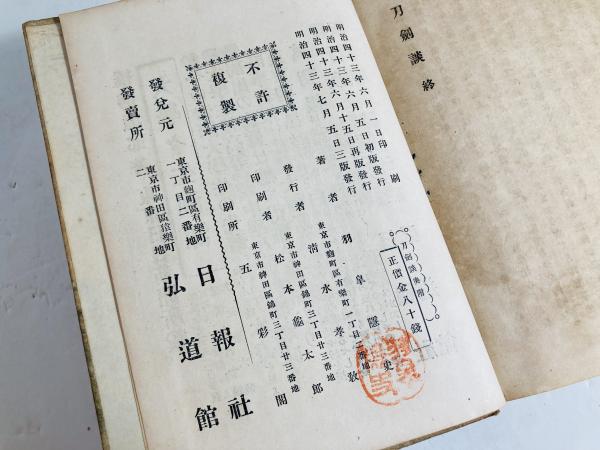 刀劍談終
刀劍談奧附
正價金八十錢
明治四十三年六月一日印刷
明治四十三年六月五日初版發行
明治四十三年六月十五日再版發行
明治四十三年七月五日三版發行
著者 羽皐隱史
東京市麴町區有樂町一丁目二番地
發行者 清水孝敎
東京市神田區錦町三丁目廿三番地
印刷者 松本龜太郎
東京市神田區錦町三丁目廿三番地
印刷所 五彩閣
不許
複製
發兌元
東京市麴町區有樂町
一丁目二番地
日報社
發賣所
東京市神田區
二番地
弘道館